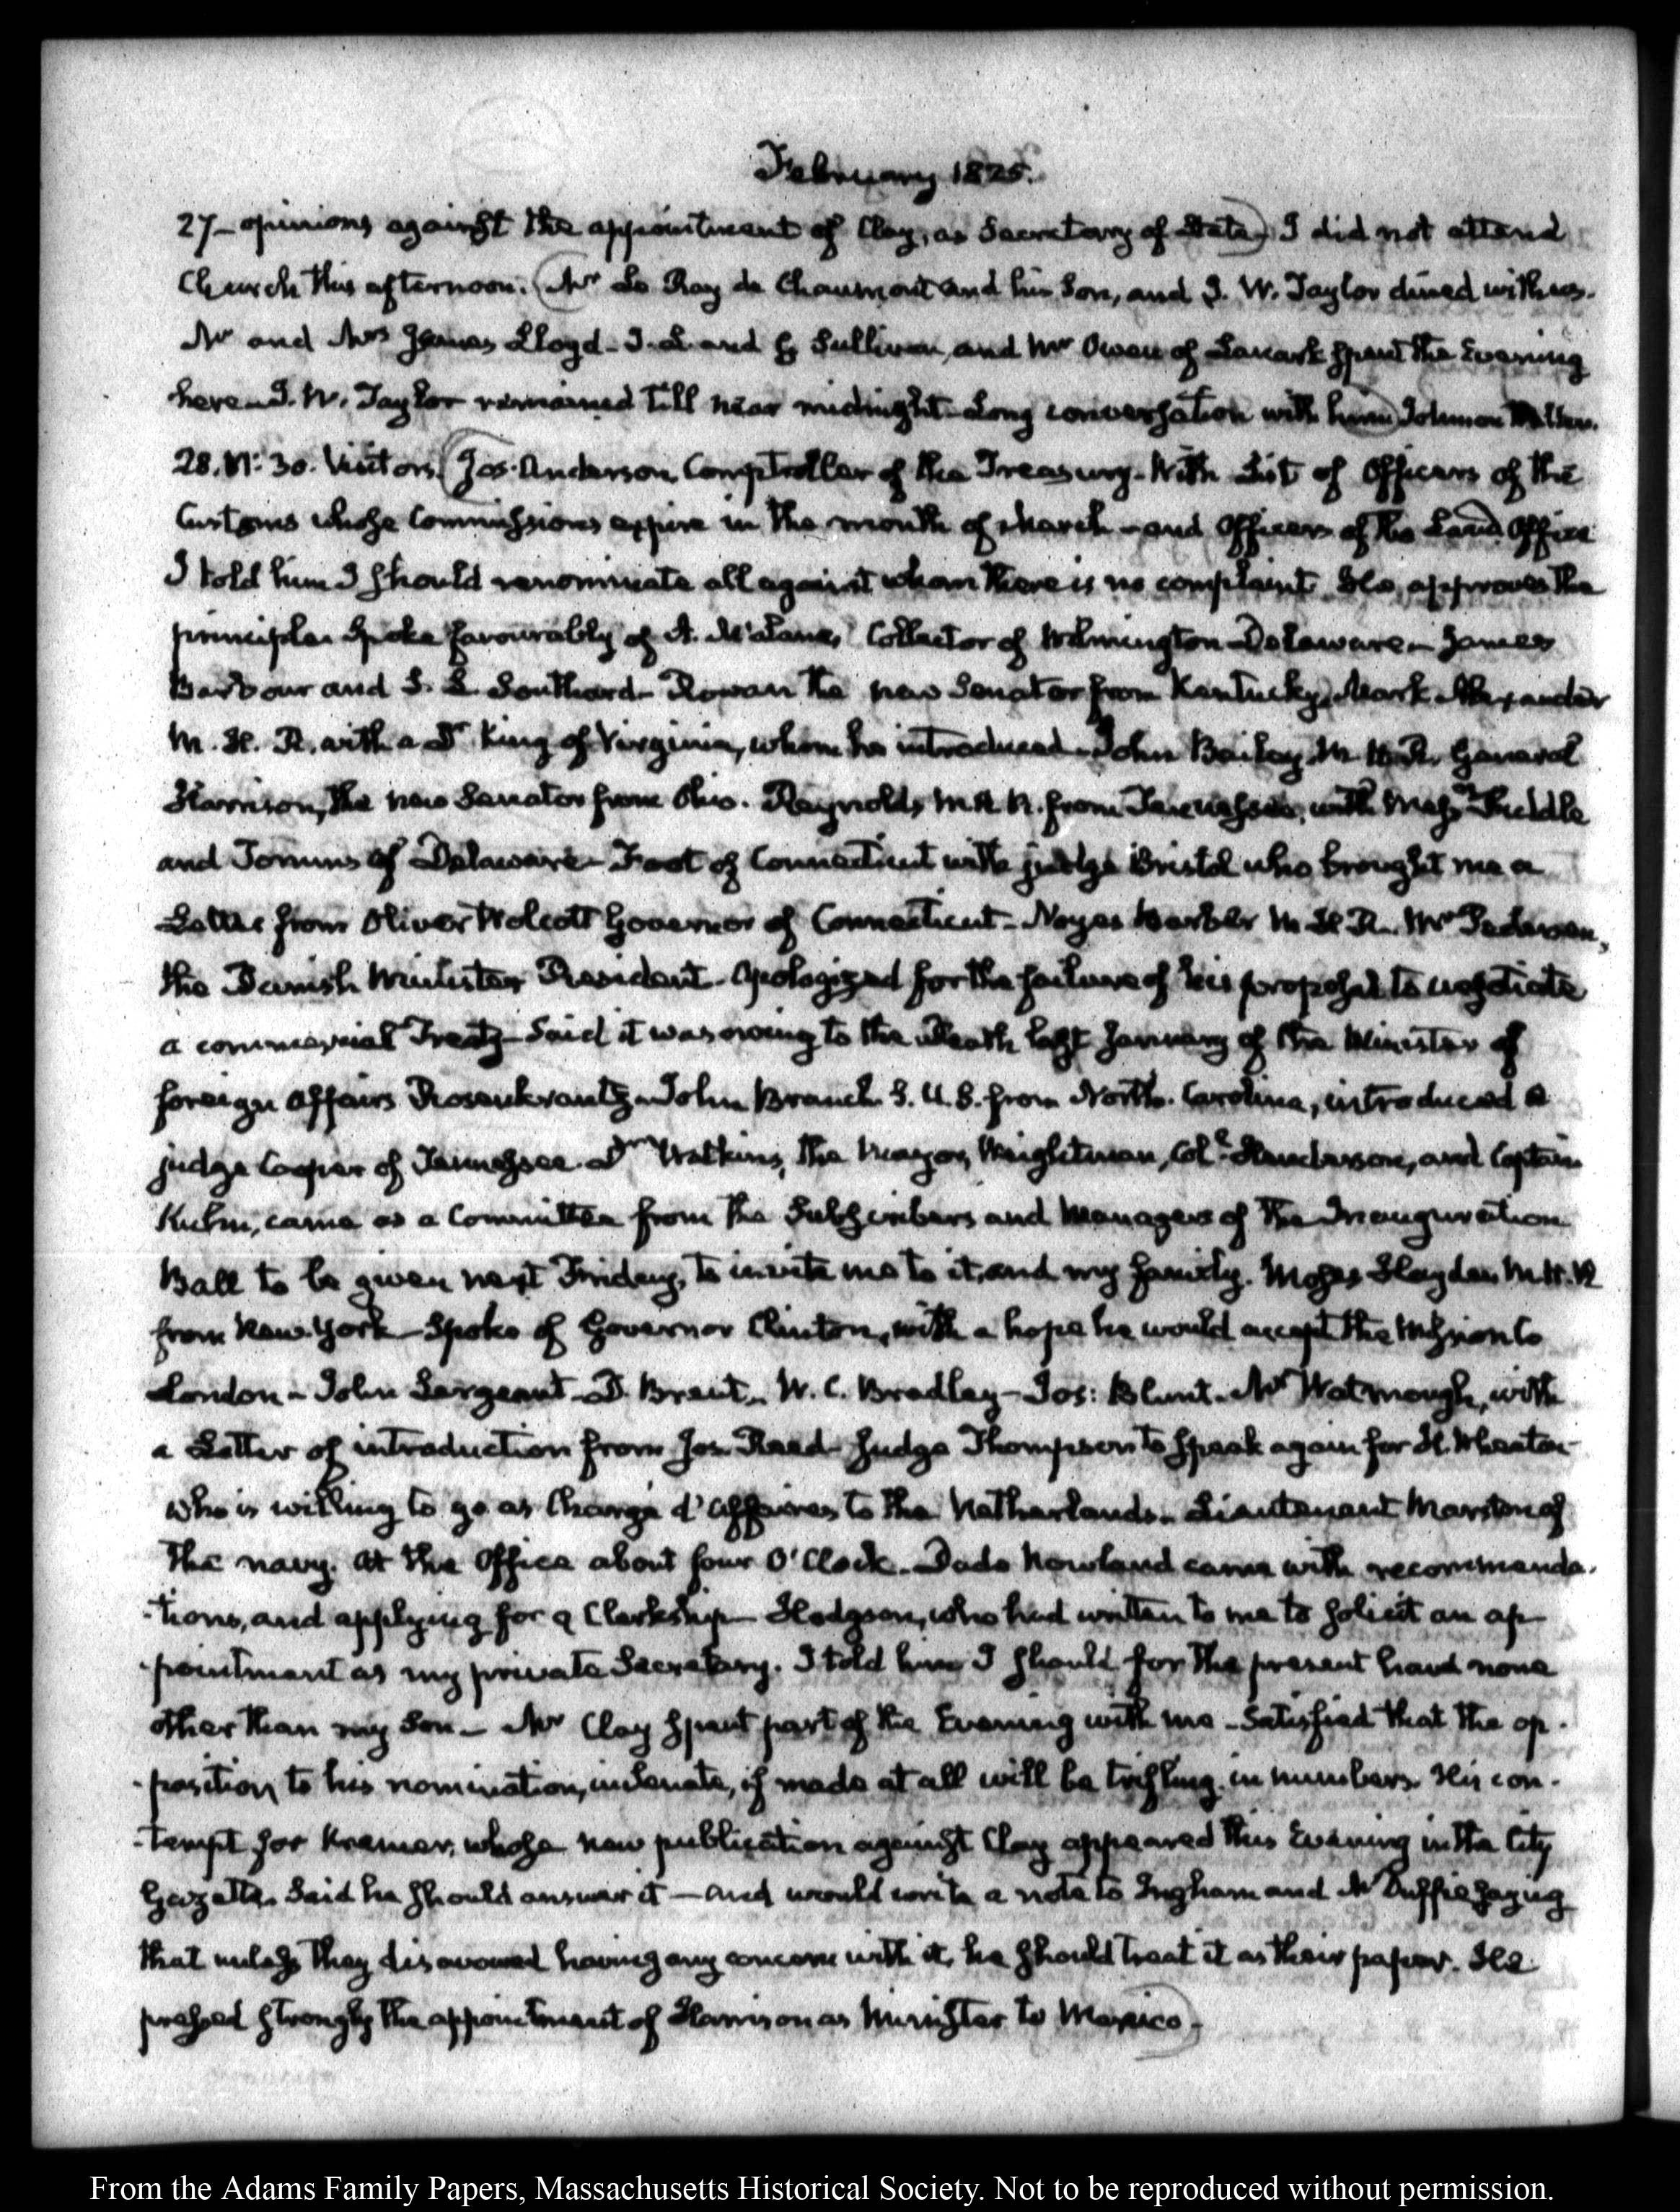 February 1825.
27— opinions against the appointment of Clay, as Secretary of State) I did not attend
Church this afternoon. (Mr Le Ray de Chaumont and his Son, and J. W. Taylor dined with us.
Mr and Mrs James Lloyd— and G Sullivan, and Mr Owen of Lanark spent the Evening
here— J. W. Taylor remained till near midnight— long conversation with him) Johnson
28. VI: 30. Visitors. (Jos. Anderson, Comptroller of the Treasury— With List of Officers of the
Customs whose Commissions expire in the month of March— and Officers of the Land Office
I told him I should renominate all against whom there is no complaint. He approves the
principle. Spoke favourably of A. McLane, Collector of Wilmington Delaware— James
Barbour and S. L. Southard— Rowan the new Senator from Kentucky, Mark Alexander
M. H. R. with a Dr King of Virginia, whom he introduced— John Bailey M. H. R. General
Harrison, the new Senator from Ohio. Reynolds M. H. R. from Tennessee, with Messrs
and of Delaware— Foot of Connecticut with judge Bristol who brought me a
Letter from Oliver Wolcott Governor of Connecticut— Noyes Barber M. H. R. Mr Pedersen,
the Danish Minister Resident— Apologized for the failure of his proposal to negotiate
a commercial Treaty— Said it was owing to the death last January of the Minister of
foreign Affairs Rosenkrantz— John Branch S. U. S. from North Carolina, introduced a
judge Cooper of Tennessee. Dr Watkins, the Mayor, Weightman, Coll Henderson, and Captain
Kuhn, came as a Committee from the Subscribers and Managers of the Inauguration
Ball to be given next Friday, to invite me to it, and my family. Moses Hayden M. H. R
from New-York— Spoke of Governor Clinton, with a hope he would accept the Mission to
London— John Sergeant— D. Brent— W. C. Bradley— Jos: Blunt— Mr Watmough, with
a Letter of introduction from Jos. Reed— Judge Thompson to speak again for H. Wheaton
who is willing to go as Chargé d'Affaires to the Netherlands— Lieutenant Marston of
the navy. At the Office about four O'Clock. Dade Nowland came with recommenda-
-tions, and applying for a Clerkship— Hodgson, who had written to me to solicit an ap-
-pointment as my private Secretary. I told him I should for the present have none
other than my Son— Mr Clay spent part of the Evening with me— Satisfied that the op-
-position to his nomination, in Senate, if made at all will be trifling in numbers. His con-
-tempt for Kremer, whose new publication against Clay appeared this Evening in the City
Gazette. Said he should answer it— and would write a note to Ingham and McDuffie saying
that unless they disavowed having any concern with it, he should treat it as their paper. He
pressed strongly the appointment of Harrison as Minister to Mexico)—
From the Adams Family Papers, Massachusetts Historical Society. Not to be reproduced without permission.